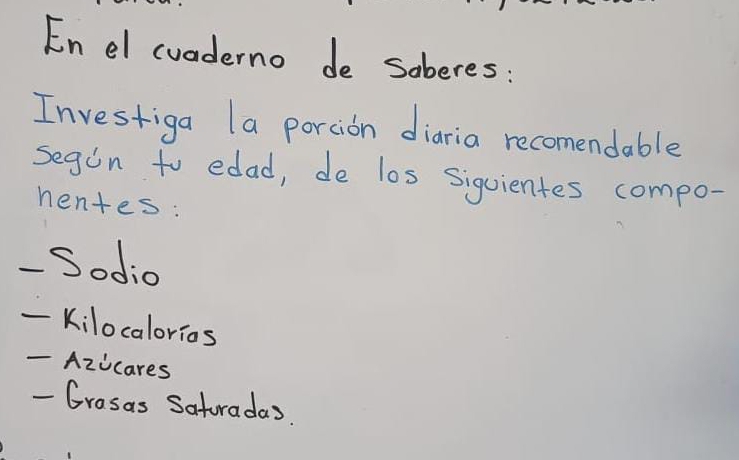 En el cuaderno de Saberes:
Investiga la porción diaria recomendable
Según tu edad, de los Siguientes compo-
nentes:
- Sodio
- Kilocalorías
- Azúcares
- Grasas Saturadas.